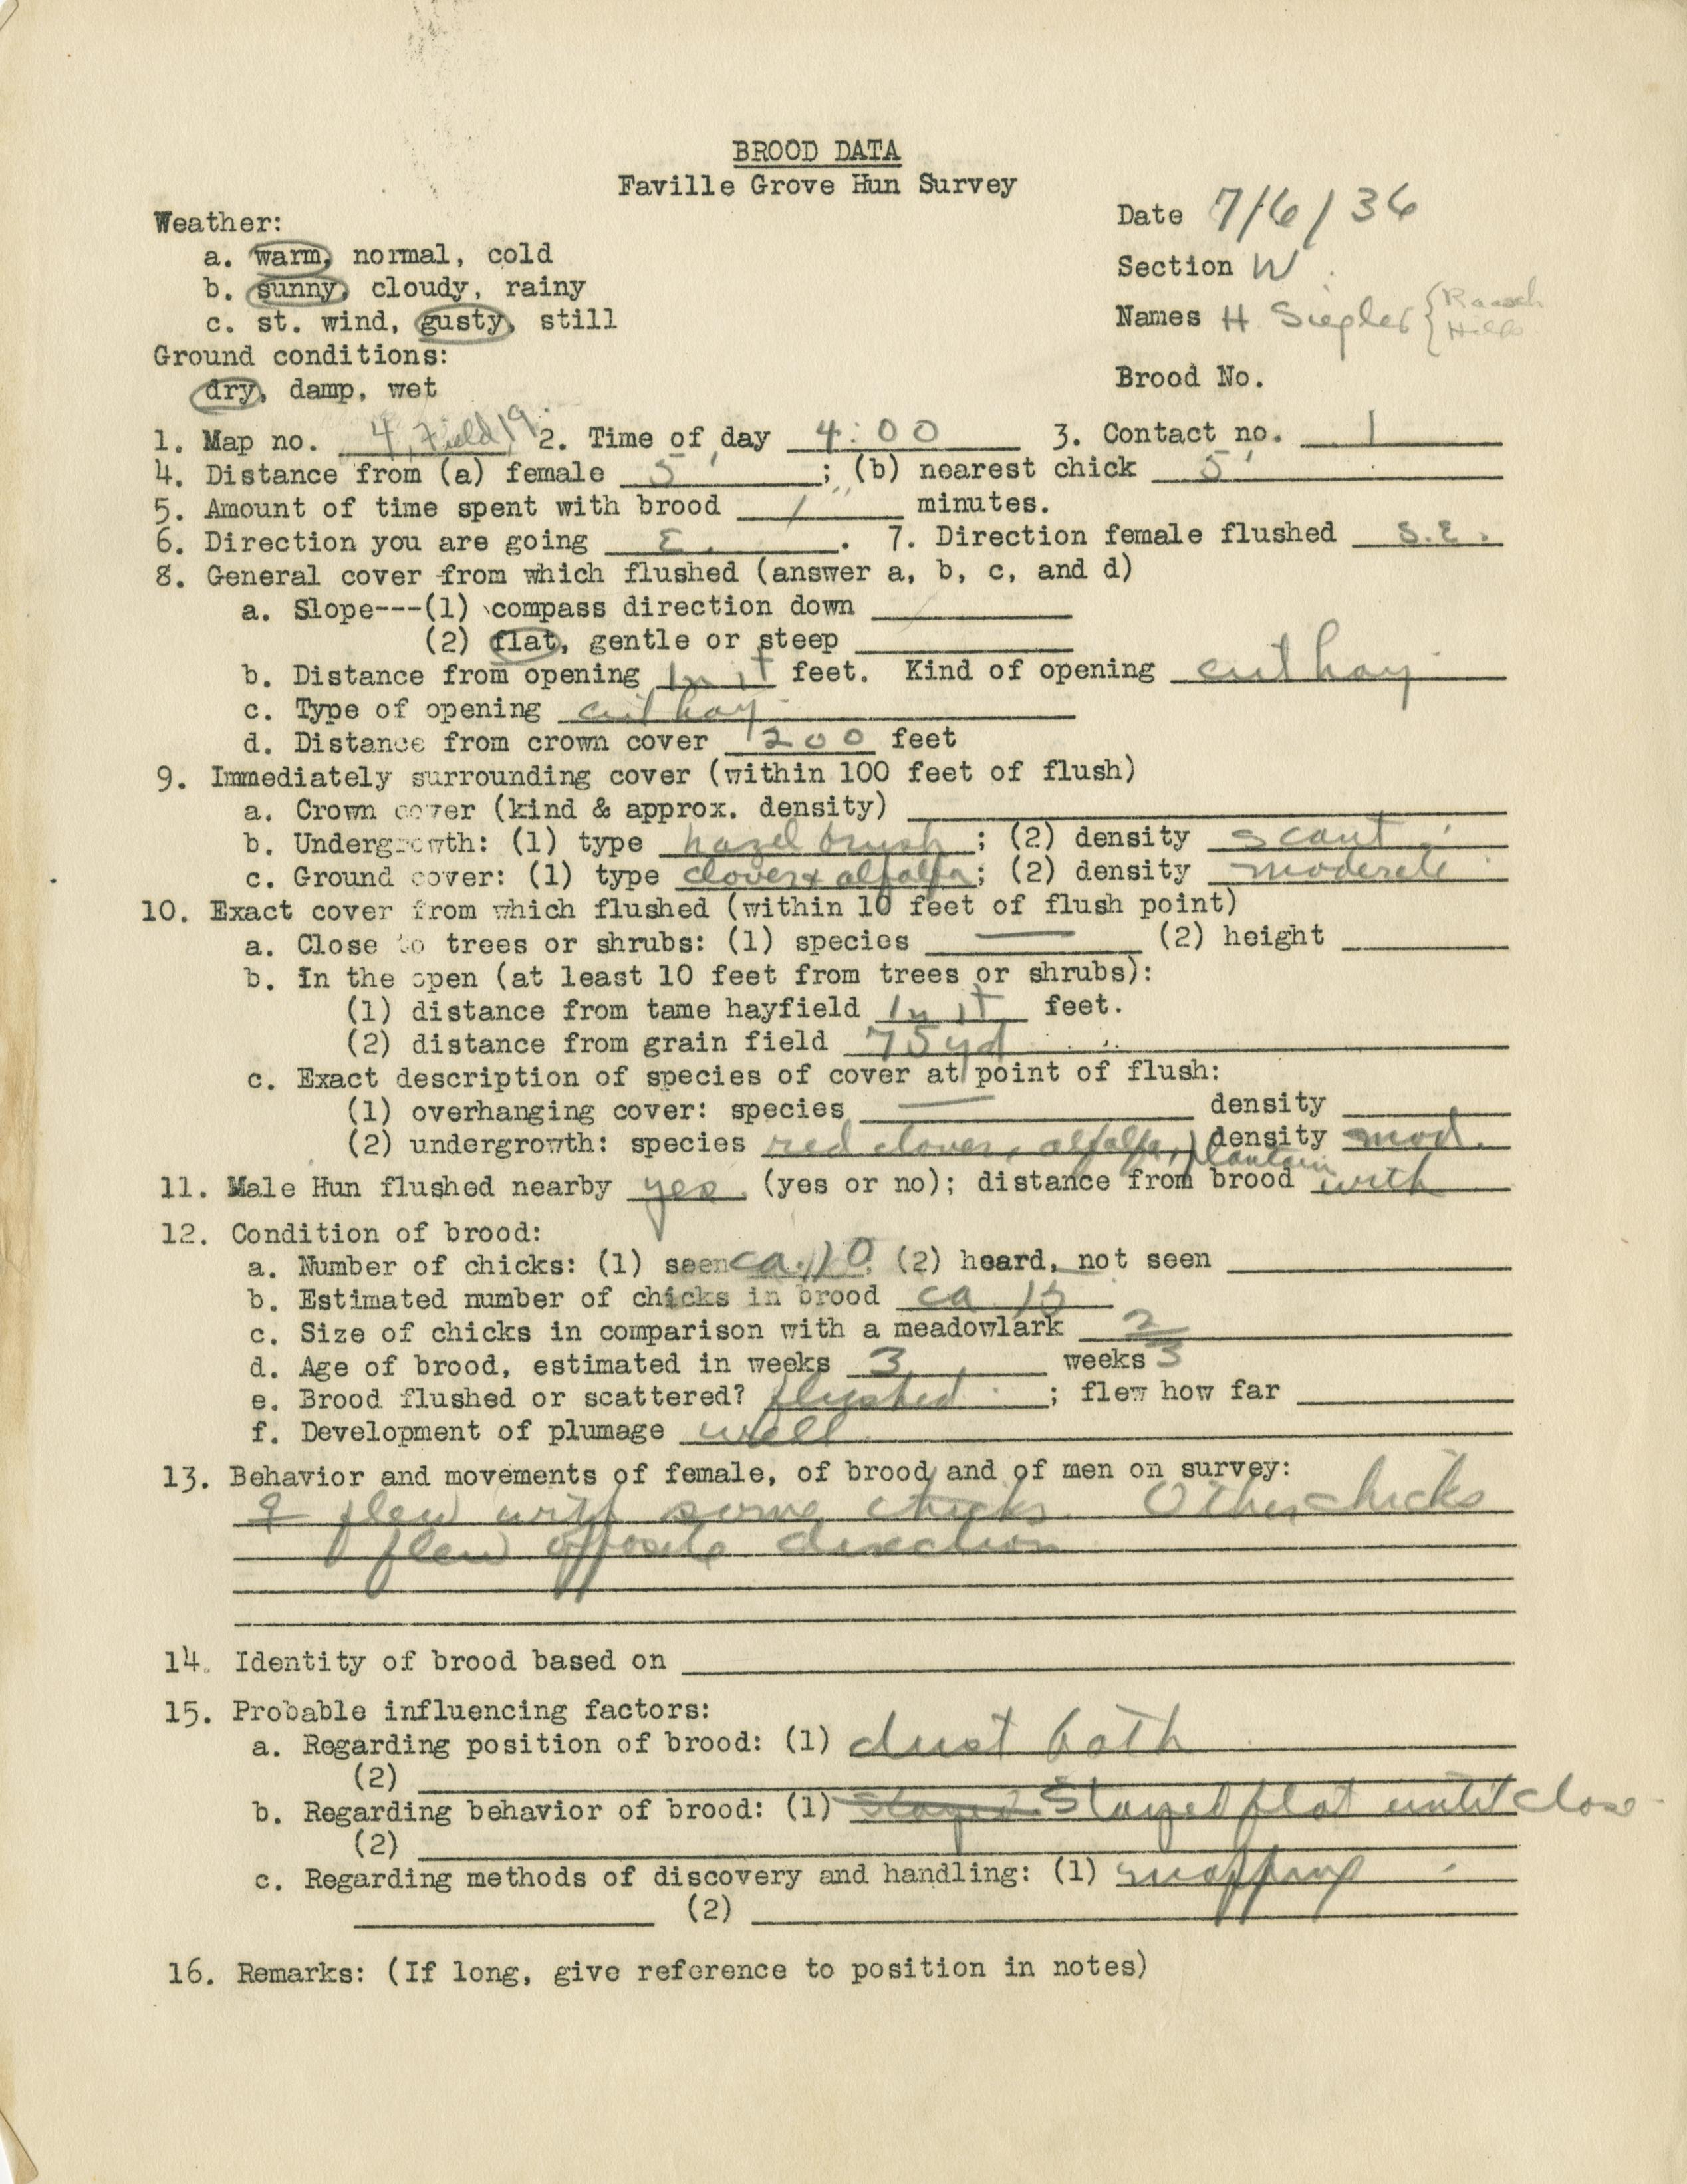 BROOD DATA
Faville Grove Hun Survey
Date 7/6/36
Weather:
a. warm, normal, cold
Section W.
b. sunny, cloudy, rainy
Names H Siegler { Raasch
c. st. wind, gusty, still
Ground conditions:
Brood No.
dry, damp, wet
1. Map no. 4, Field 19 2. Time of day 4:00 3. Contact no. 1
4. Distance from (a) female 5'; (b) nearest chick 5'
5. Amount of time spent with brood 1 minutes.
6. Direction you are going E. . 7. Direction female flushed S.E.
8. General cover from which flushed (answer a, b, c, and d)
a. Slope---(1) compass direction down
(2) flat, gentle or steep
b. Distance from opening In it feet. Kind of opening cut hay
c. Type of opening cut hay
d. Distance from crown cover 200 feet
9. Immediately surrounding cover (within 100 feet of flush)
a. Crown cover (kind & approx. density)
b. Undergrowth: (1) type hazel brush; (2) density scant
c. Ground cover: (1) type clover + alfalfa; (2) density moderate
10. Exact cover from which flushed (within 10 feet of flush point)
a. Close to trees or shrubs: (1) species — (2) height
b. In the open (at least 10 feet from trees or shrubs):
(1) distance from tame hayfield In it feet.
(2) distance from grain field 75 yd
c. Exact description of species of cover at point of flush:
(1) overhanging cover: species — density
(2) undergrowth: species red clover, alfalfa, plantain density mod.
11. Male Hun flushed nearby yes (yes or no); distance from brood with
12. Condition of brood:
a. Number of chicks: (1) seen ca. 10 (2) heard, not seen
b. Estimated number of chicks in brood ca 15
c. Size of chicks in comparison with a meadowlark 2/3
d. Age of brood, estimated in weeks 3 weeks
e. Brood flushed or scattered? flushed; flew how far
f. Development of plumage well
13. Behavior and movements of female, of brood and of men on survey:
♀ flew with some chicks. Other chicks
flew opposite direction
14. Identity of brood based on
15. Probable influencing factors:
a. Regarding position of brood: (1) dust bath
(2)
b. Regarding behavior of brood: (1) Stayed Stayed flat until close
(2)
c. Regarding methods of discovery and handling: (1) mapping
(2)
16. Remarks: (If long, give reference to position in notes)